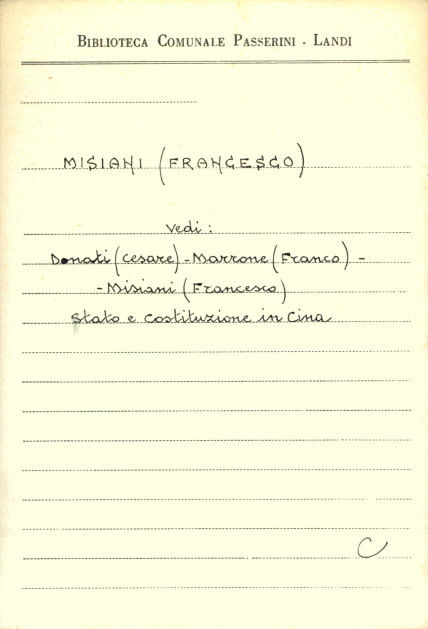 BIBLIOTECA COMUNALE PASSERINI - LANDI
MISIANI (FRANCESCO)
Vedi:
Donati (Cesare) - Marrone (Franco) -
- Misiani (Francesco)
Stato e costituzione in Cina
C